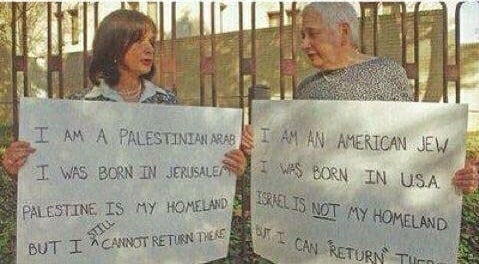 I AM A PALESTINIAN ARAB
I WAS BORN IN JERUSALEM
PALESTINE IS MY HOMELAND
BUT I STILL CANNOT RETURN THERE
I AM AN AMERICAN JEW
I WAS BORN IN U.S.A.
ISRAEL IS NOT MY HOMELAND
BUT I CAN "RETURN" THERE